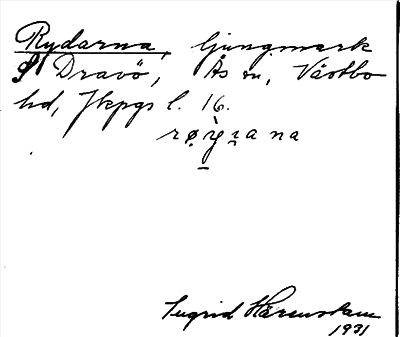 Rydarna, ljungmark
S Dravö, Ås sn, Västbo
hd, Jkpgs l. 16.
Ingrid Härenstam
1931